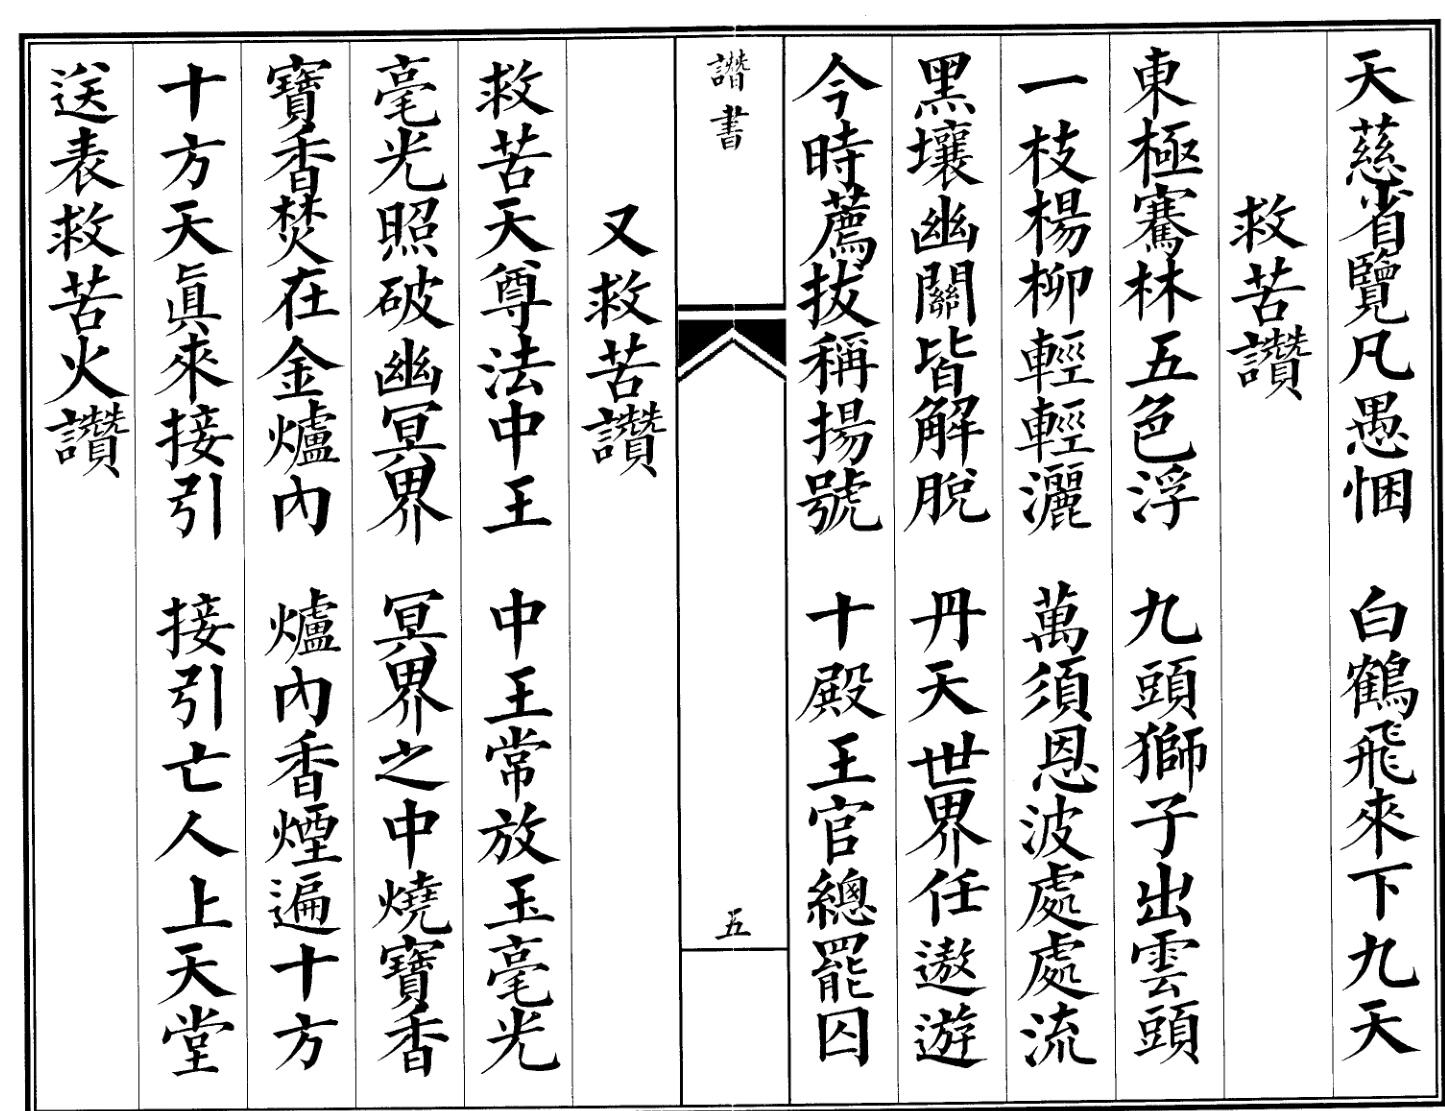 天慈省覽凡愚悃　白鶴飛來下九天
救苦讚
東極騫林五色浮　九頭獅子出雲頭
一枝楊柳輕輕灑　萬須恩波處處流
黑壤幽關皆解脫　丹天世界任遨遊
今時薦拔稱揚號　十殿王官總罷囚
讚書
五
又救苦讚
救苦天尊法中王　中王常放玉毫光
毫光照破幽冥界　冥界之中燒寶香
寶香焚在金爐內　爐內香煙遍十方
十方天眞來接引　接引亡人上天堂
送表救苦火讚